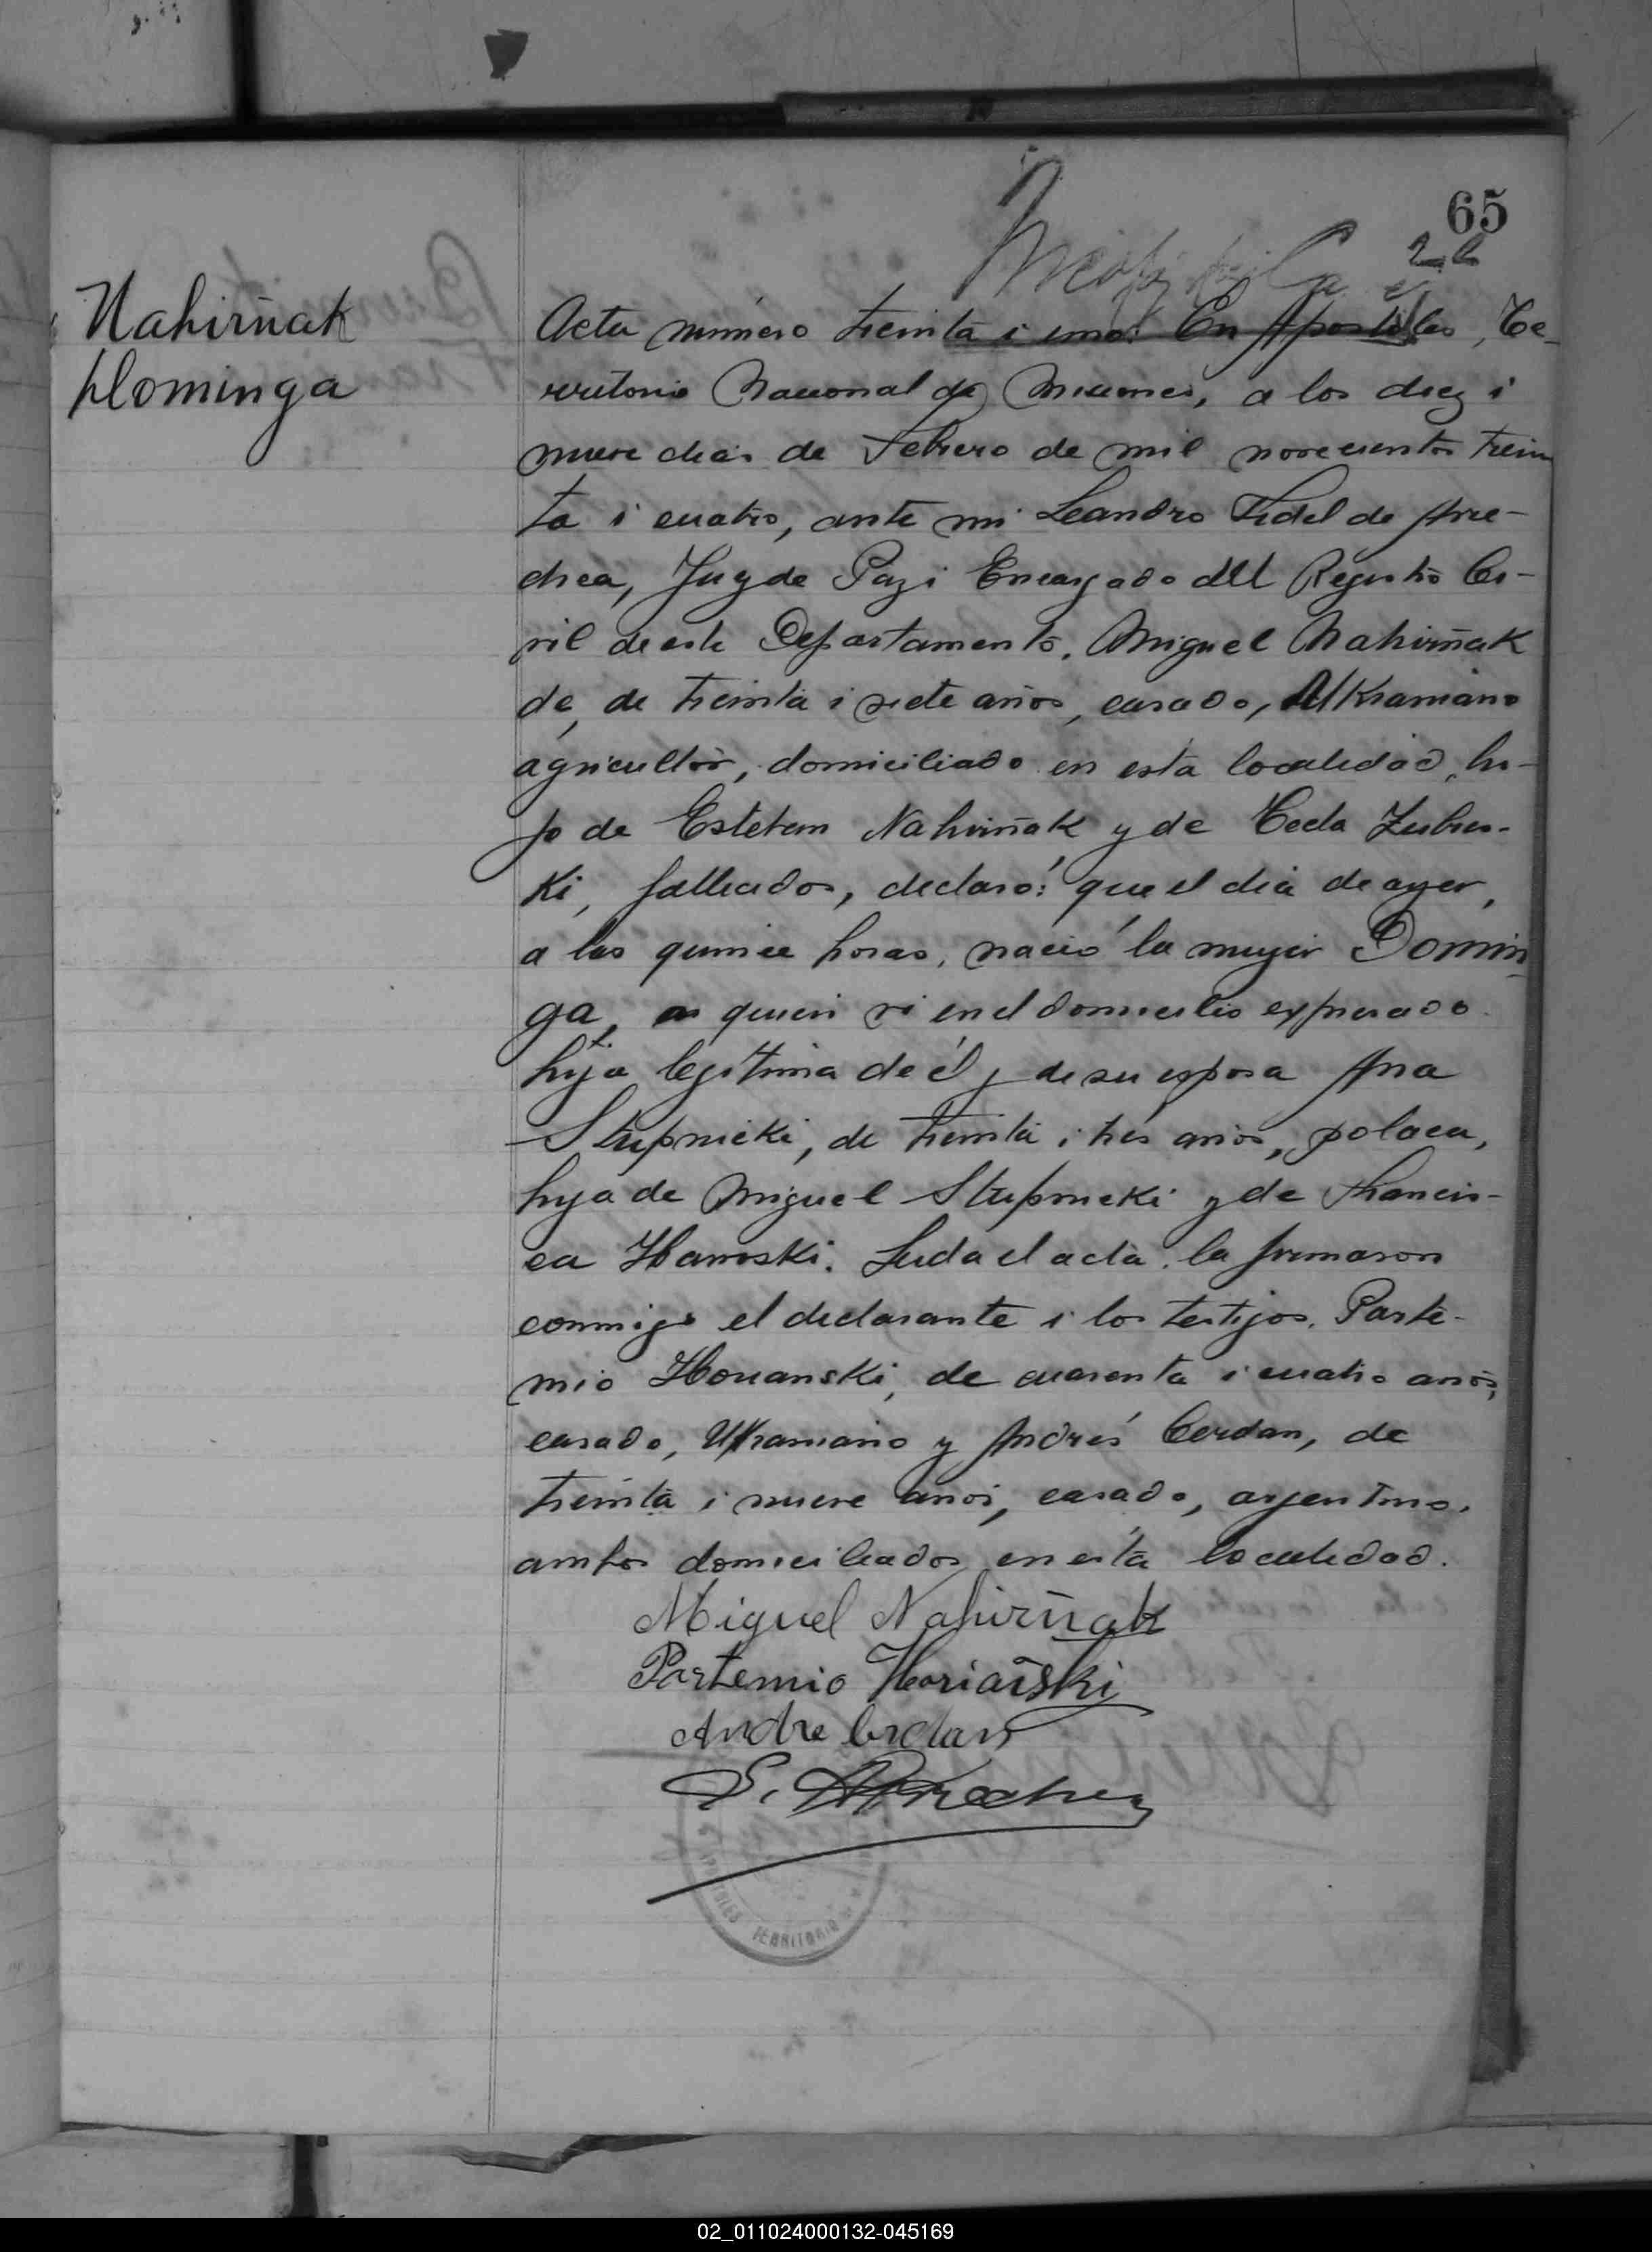 65
Nahirñak
Dominga
Acta número treinta i uno: En Apostoles, Te-
rritorio Nacional de Misiones, a los diez i
nueve dias de Febrero de mil novecientos trein
ta i cuatro, ante mi Leandro Fidel de Arre-
chea, Juez de Paz i Encargado del Registro Ci-
vil de este Departamento, Miguel Nahirñak
de, de treinta i siete años, casado, Ukraniano
agricultor, domiciliado en esta localidad, hi-
jo de Esteban Nahirñak y de Tecla Zubres-
ki, fallecidos, declaró: que el dia de ayer,
a las quince horas, nació la mujer Domin
ga, a quien vi en el domicilio expresado
hija legítima de él y de su esposa Ana
Stupnicki, de treinta i tres años, polaca,
hija de Miguel Stupnicki y de Francis-
ca. Leida el acta, la firmaron
conmigo el declarante i los testigos, Parte-
mio, de cuarenta i cuatro años,
casado, Ukraniano y Andrés Cerdan, de
treinta i nueve años, casado, argentino,
ambos domiciliados en esta localidad.
Miguel Nahirñak
Partemio
Andre Cerdan
L. Arrechea
TERRITORIO
02_011024000132-045169